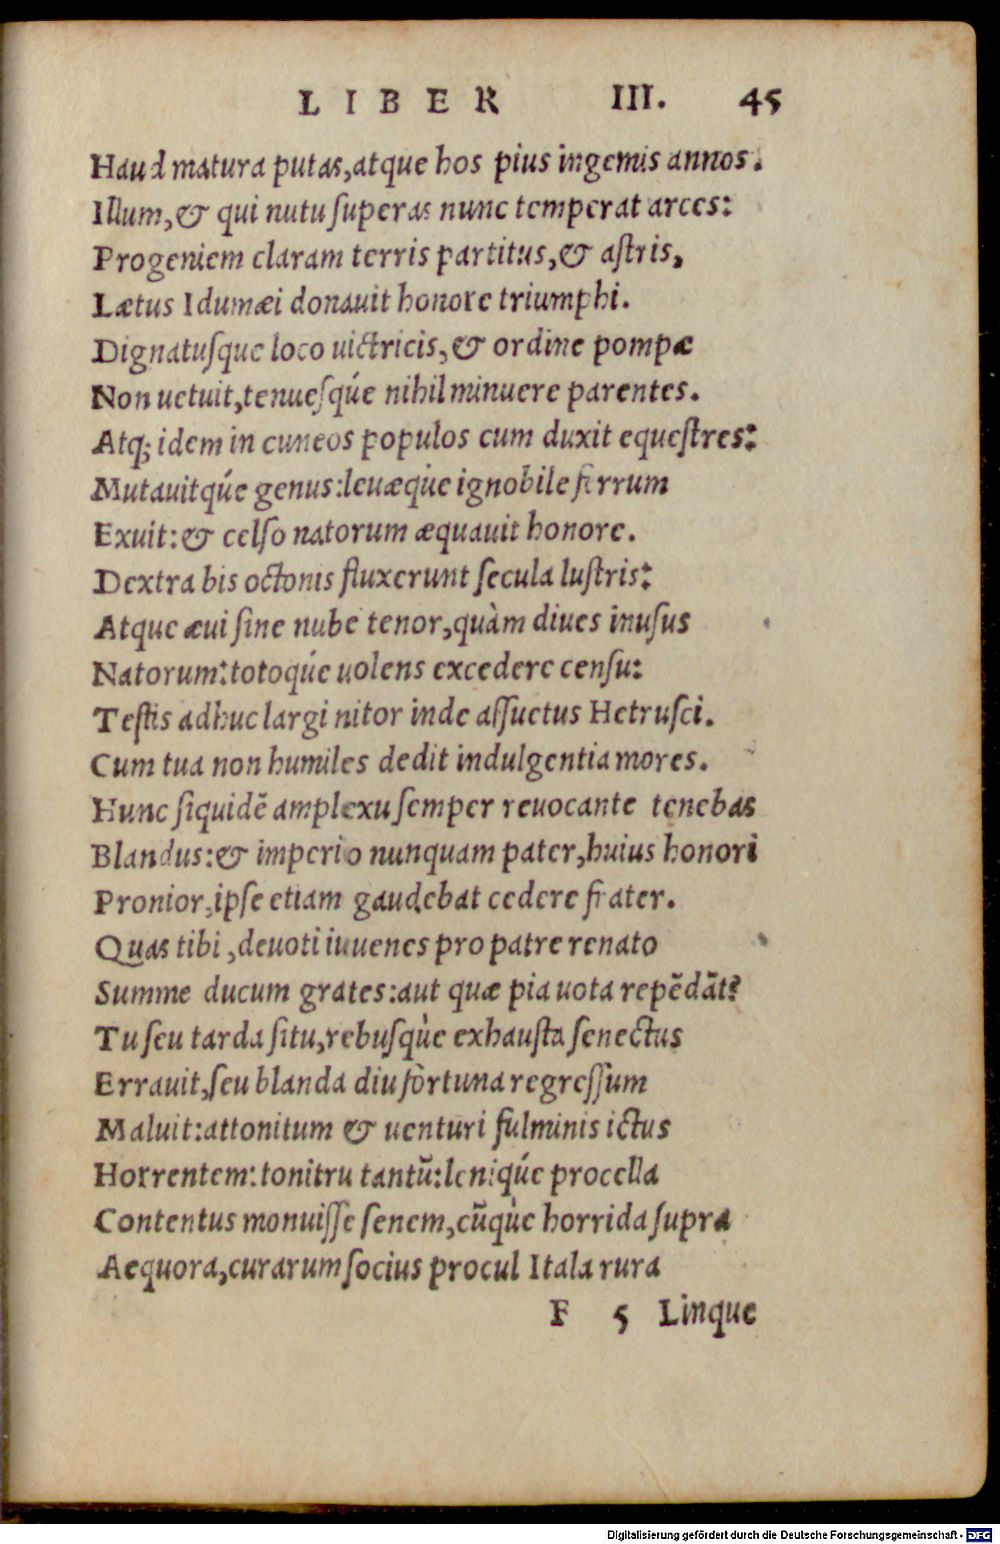 LIBER III. 45
Haud matura putas,atque hos pius ingemis annos.
Illum,& qui nutu ſuperas nunc temperat arces:
Progeniem claram terris partitus,& aſtris,
Lætus Idumæi donauit honore triumphi.
Dignatuſque loco uictricis,& ordine pompæ
Non uetuit,tenueſqúe nihil minuere parentes.
Atq; idem in cuneos populos cum duxit equeſtres:
Mutauitqúe genus:leuæqùe ignobile ferrum
Exuit:& celſo natorum æquauit honore.
Dextra bis octonis fluxerunt ſecula luſtris:
Atque æui ſine nube tenor,quàm diues inuſus
Natorum:totoqúe uolens excedere cenſu:
Teſtis adhuc largi nitor inde aſſuetus Hetruſci.
Cum tua non humiles dedit indulgentia mores.
Hunc ſiquidē amplexu ſemper reuocante tenebas
Blandus:& imperio nunquam pater,huius honori
Pronior,ipſe etiam gaudebat cedere frater.
Quas tibi ,deuoti iuuenes pro patre renato
Summe ducum grates:aut quæ pia uota repēdāt?
Tu ſeu tarda ſitu,rebuſqùe exhauſta ſenectus
Errauit,ſeu blanda diu fortuna regreſſum
Maluit:attonitum & uenturi fulminis ictus
Horrentem:tonitru tantū:leniqúe procella
Contentus monuiſſe ſenem,cūqùe horrida ſupra
Aequora,curarum ſocius procul Itala rura
F 5 Linque
Digitalisierung gefördert durch die Deutsche Forschungsgemeinschaft - DFG